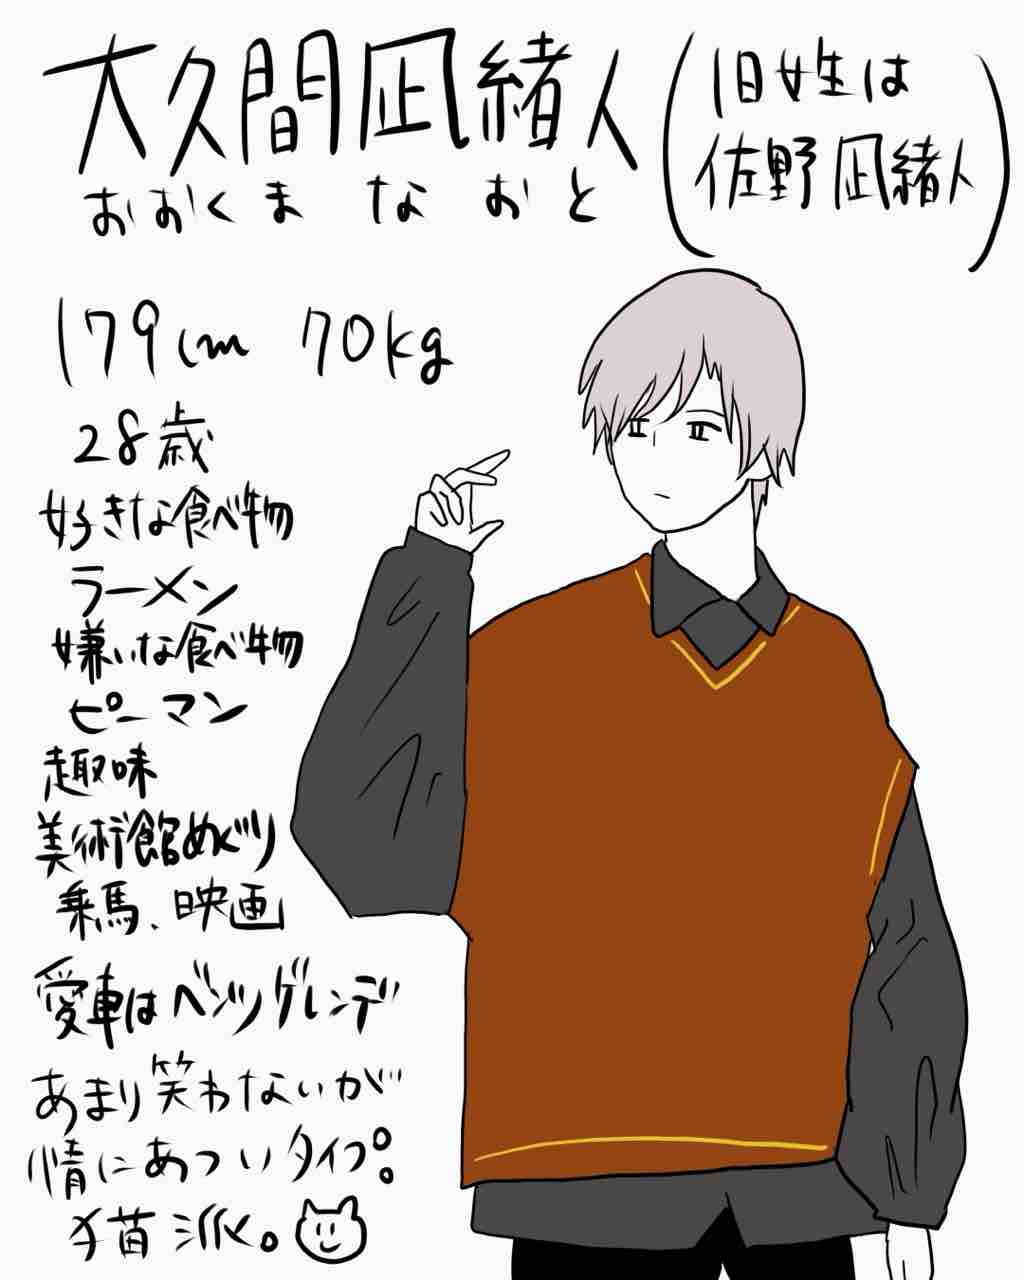 大久間凪緒人
おおくま なおと
(旧姓は
佐野凪緒人)
179cm 70kg
28歳
好きな食べ物
ラーメン
嫌いな食べ物
ピーマン
趣味
美術館めぐり
乗馬、映画
愛車はベンツゲレンデ
あまり笑わないが
情にあついタイプ。
猫派。